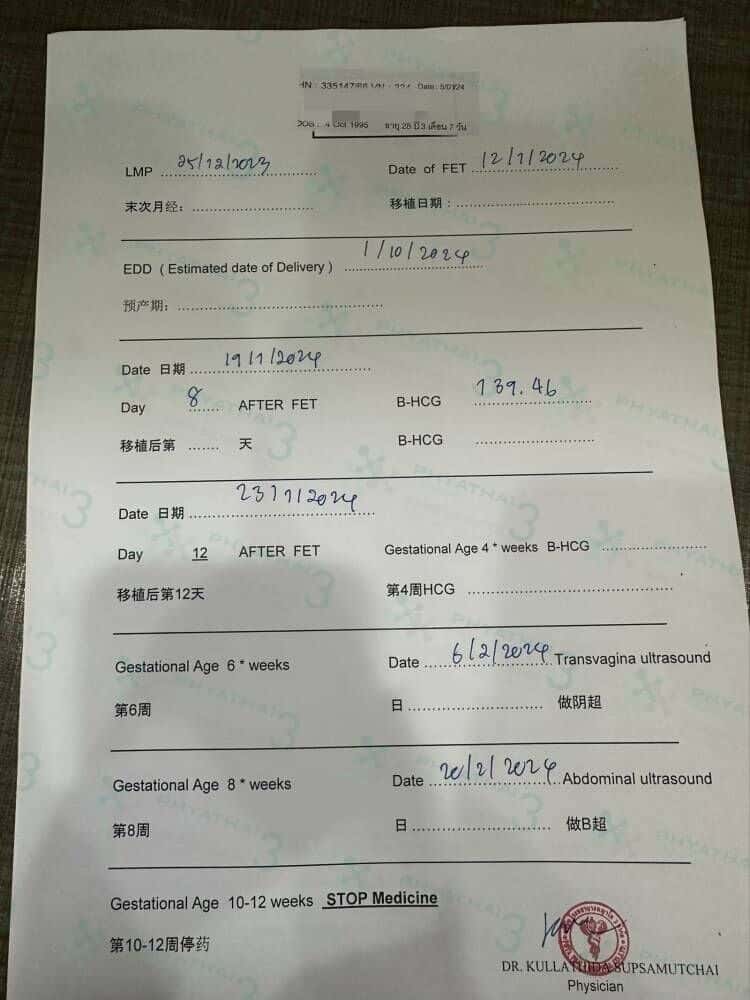 HN : 335147/66 Date: 5/01/24
DOB : 4 Oct 1995 อายุ 28 ปี 3 เดือน 7 วัน
LMP 25/12/2023 Date of FET 12/1/2024
末次月经: 移植日期:
EDD ( Estimated date of Delivery ) 1/10/2024
预产期:
Date 日期 19/1/2024
Day 8 AFTER FET B-HCG 139.46
移植后第 天 B-HCG
Date 日期 23/1/2024
Day 12 AFTER FET Gestational Age 4 * weeks B-HCG
移植后第12天 第4周HCG
Gestational Age 6 * weeks Date 6/2/2024 Transvagina ultrasound
第6周 日 做阴超
Gestational Age 8 * weeks Date 20/2/2024 Abdominal ultrasound
第8周 日 做B超
Gestational Age 10-12 weeks STOP Medicine
第10-12周停药
DR. KULLATHIDA SUPSAMUTCHAI
Physician
PHYATHAI 3